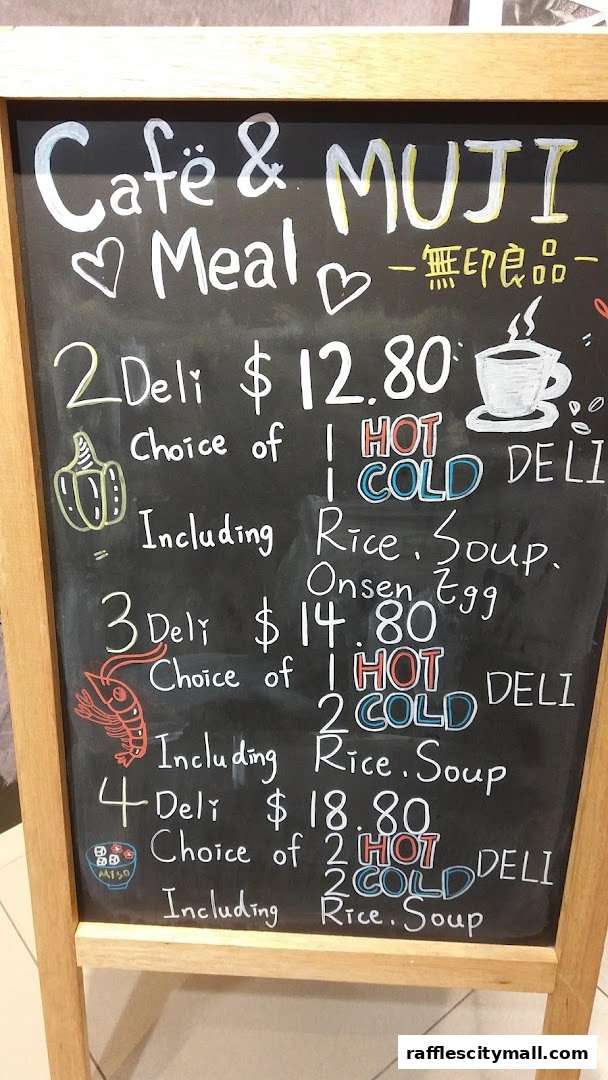 Cafë & MUJI
Meal -無印良品-
2 Deli $ 12.80
Choice of 1 HOT
1 COLD DELI
Including Rice. Soup.
Onsen Egg
3 Deli $ 14.80
Choice of 1 HOT
2 COLD DELI
Including Rice. Soup
4 Deli $ 18.80
Choice of 2 HOT
2 COLD DELI
MISO
Including Rice. Soup
rafflescitymall.com